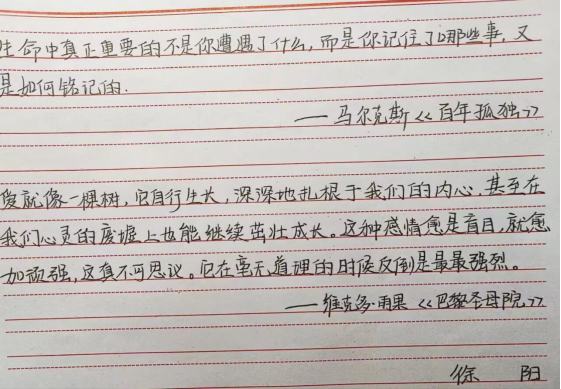 生命中真正重要的不是你遭遇了什么,而是你记住了哪些事,又
是如何铭记的.
——马尔克斯<<百年孤独>>
爱就像一棵树,它自行生长,深深地扎根于我们的内心,甚至在
我们心灵的废墟上也能继续茁壮成长。这种感情愈是盲目,就愈
加顽强,这真不可思议。它在毫无道理的时候反倒是最最强烈。
——维克多·雨果<<巴黎圣母院>>
徐 阳